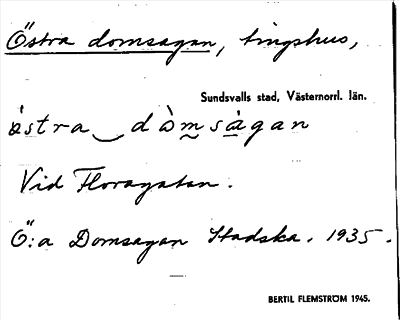 Östra domsagan, tingshus,
Sundsvalls stad, Västernorrl. län.
östra‿dòm̰ságan
Vid Floragatan.
Ö:a Domsagan Stadska. 1935.
BERTIL FLEMSTRÖM 1945.